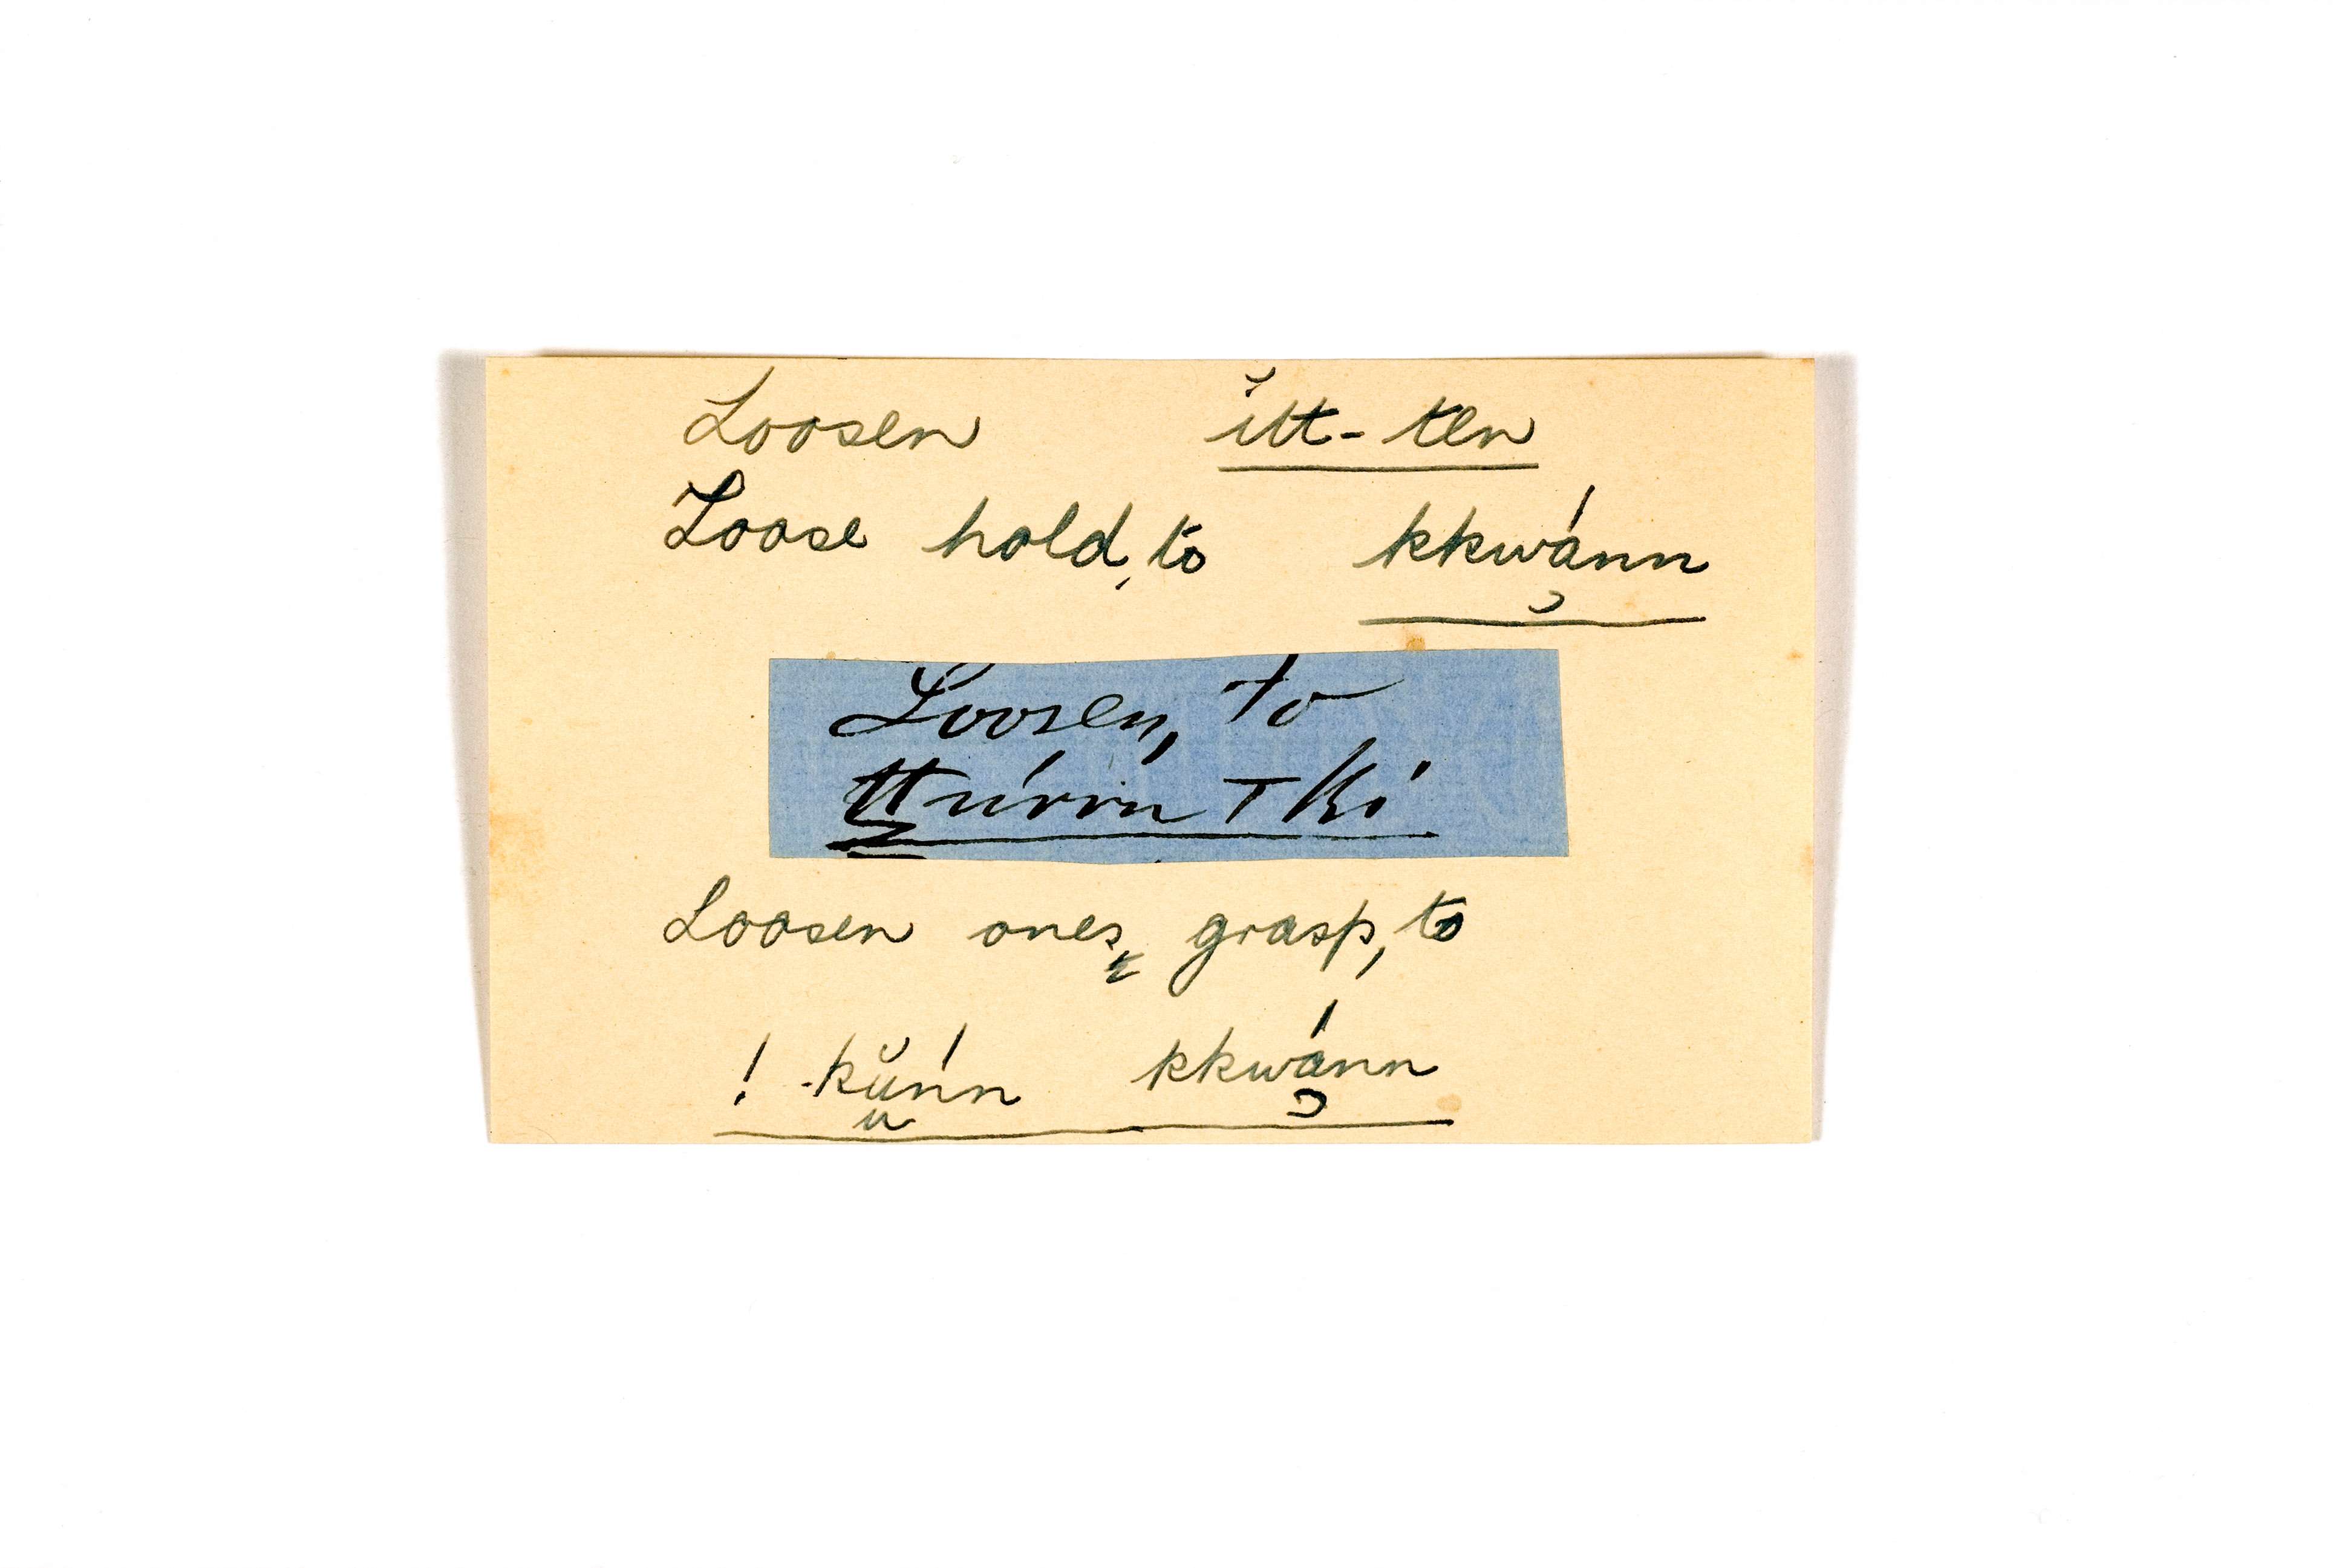 Loosen ĭtt-ten
Loose hold, to kkwánn
Loosen, to
ttúrru T kí
Loosen ones grasp, to
! kŭńn kkwánn